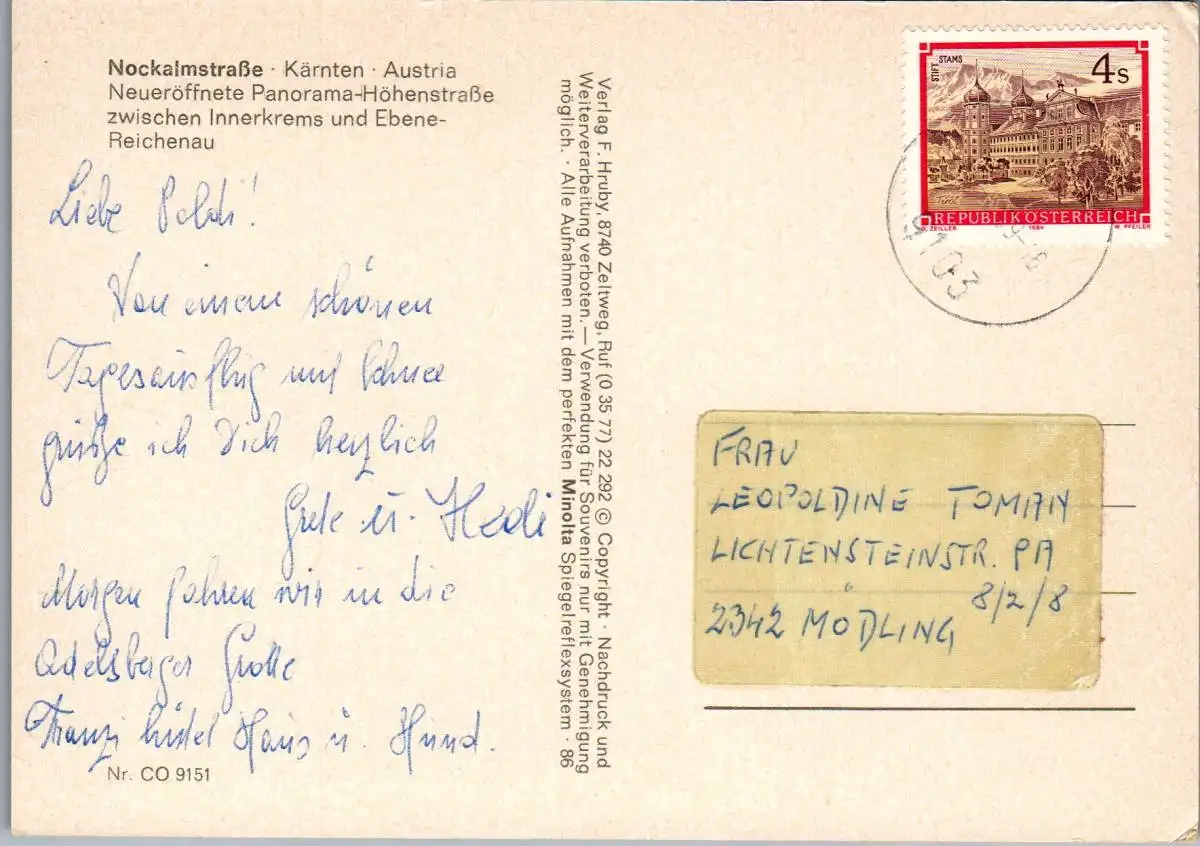 Nockalmstraße · Kärnten · Austria
Neueröffnete Panorama-Höhenstraße
zwischen Innerkrems und Ebene-
Reichenau
Liebe Poldi!
Von einem schönen
Tagesausflug mit Schnee
grüße ich Dich herzlich
Grete u. Hedi
Morgen fahren wir in die
Adelsberger Grotte
Franzi hütet Haus u. Hund.
Nr. CO 9151
Verlag F. Hruby, 8740 Zeltweg, Ruf (0 35 77) 22 292 © Copyright · Nachdruck und
Weiterverarbeitung verboten. — Verwendung für Souvenirs nur mit Genehmigung
möglich. · Alle Aufnahmen mit dem perfekten Minolta Spiegelreflexsystem · 86
STIFT STAMS
4 S
Tirol
REPUBLIK ÖSTERREICH
O. ZEILLER 1984 W. PFEILER
9103
FRAU
LEOPOLDINE TOMAN
LICHTENSTEINSTR. PA
8/2/8
2342 MÖDLING